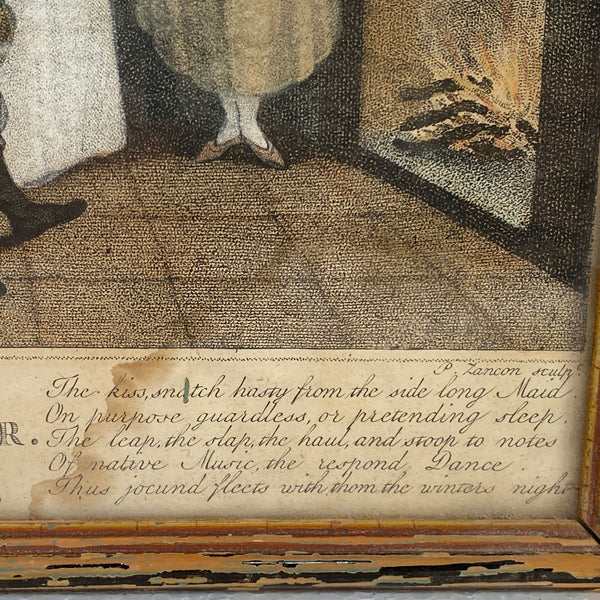 P. Zancon sculpt
The kiss, snatch hasty from the side long Maid
On purpose guardless, or pretending sleep.
R. The leap, the slap, the haul, and stoop to notes
Of native Music, the respond Dance.
Thus jocund fleets with thom the winters night